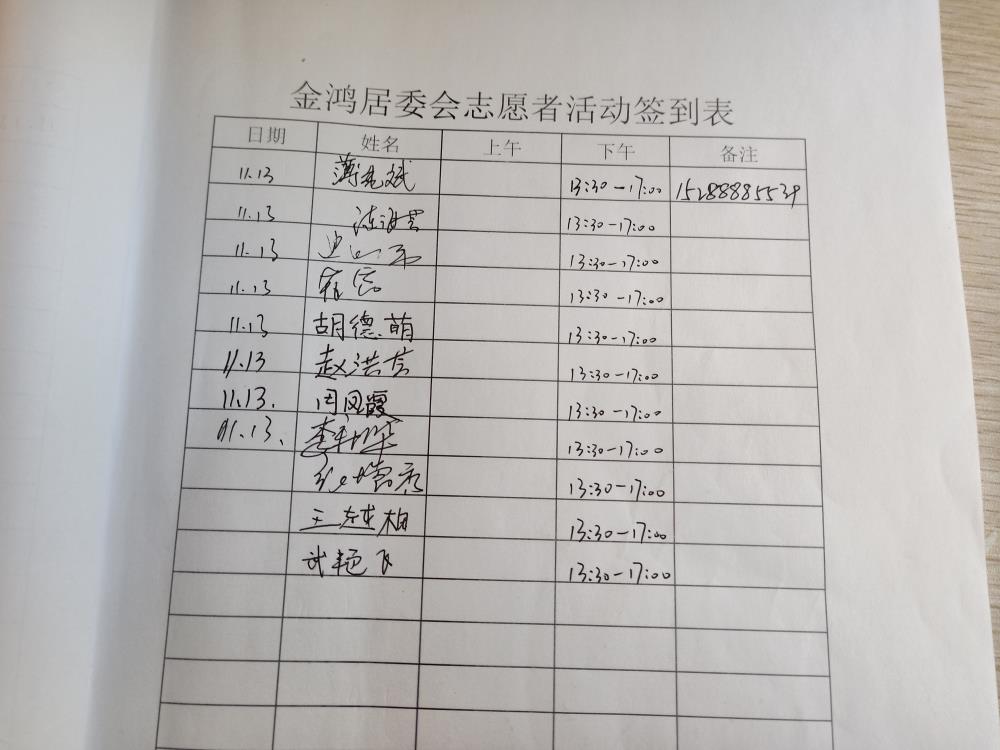 金鸿居委会志愿者活动签到表
日期 姓名 上午 下午 备注
11.13 13:30-17:00 15288885539
11.13 13:30-17:00
11.13 13:30-17:00
11.13 13:30-17:00
11.13 胡德萌 13:30-17:00
11.13 赵洪 13:30-17:00
11.13. 周凤霞 13:30-17:00
11.13. 李 13:30-17:00
13:30-17:00
王 柏 13:30-17:00
武艳飞 13:30-17:00